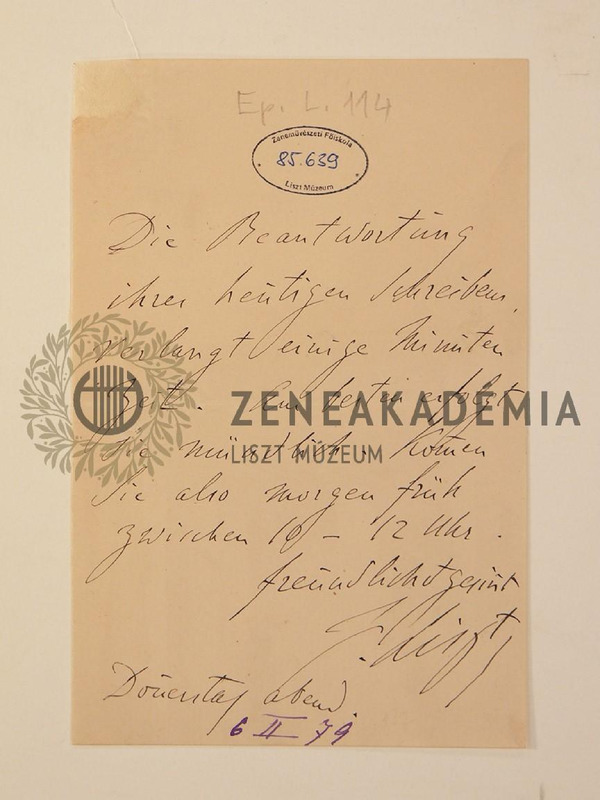 Ep. L. 114
Zeneművészeti Főiskola
85.639
Liszt Múzeum
Die Beantwortung
ihres heutigen Schreibens,
verlangt einige Minuten
Zeit. Am besten erfolgt
sie mündlich. Kom̄en
Sie also morgen früh
zwischen 10 – 12 Uhr.
freundlichst gesin̄t
F. Liszt
Don̄erstag abend.
6 II 79
ZENEAKADÉMIA
LISZT MÚZEUM